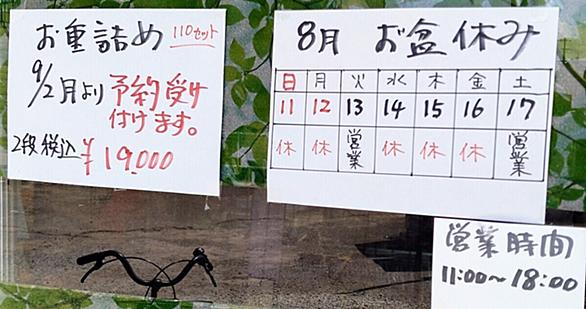 お重詰め 110セット
9/2月より予約受け
付けます。
2段税込 ¥19,000
8月 お盆休み
日 月 火 水 木 金 土
11 12 13 14 15 16 17
休 休 営業 休 休 休 営業
営業時間
11:00~18:00